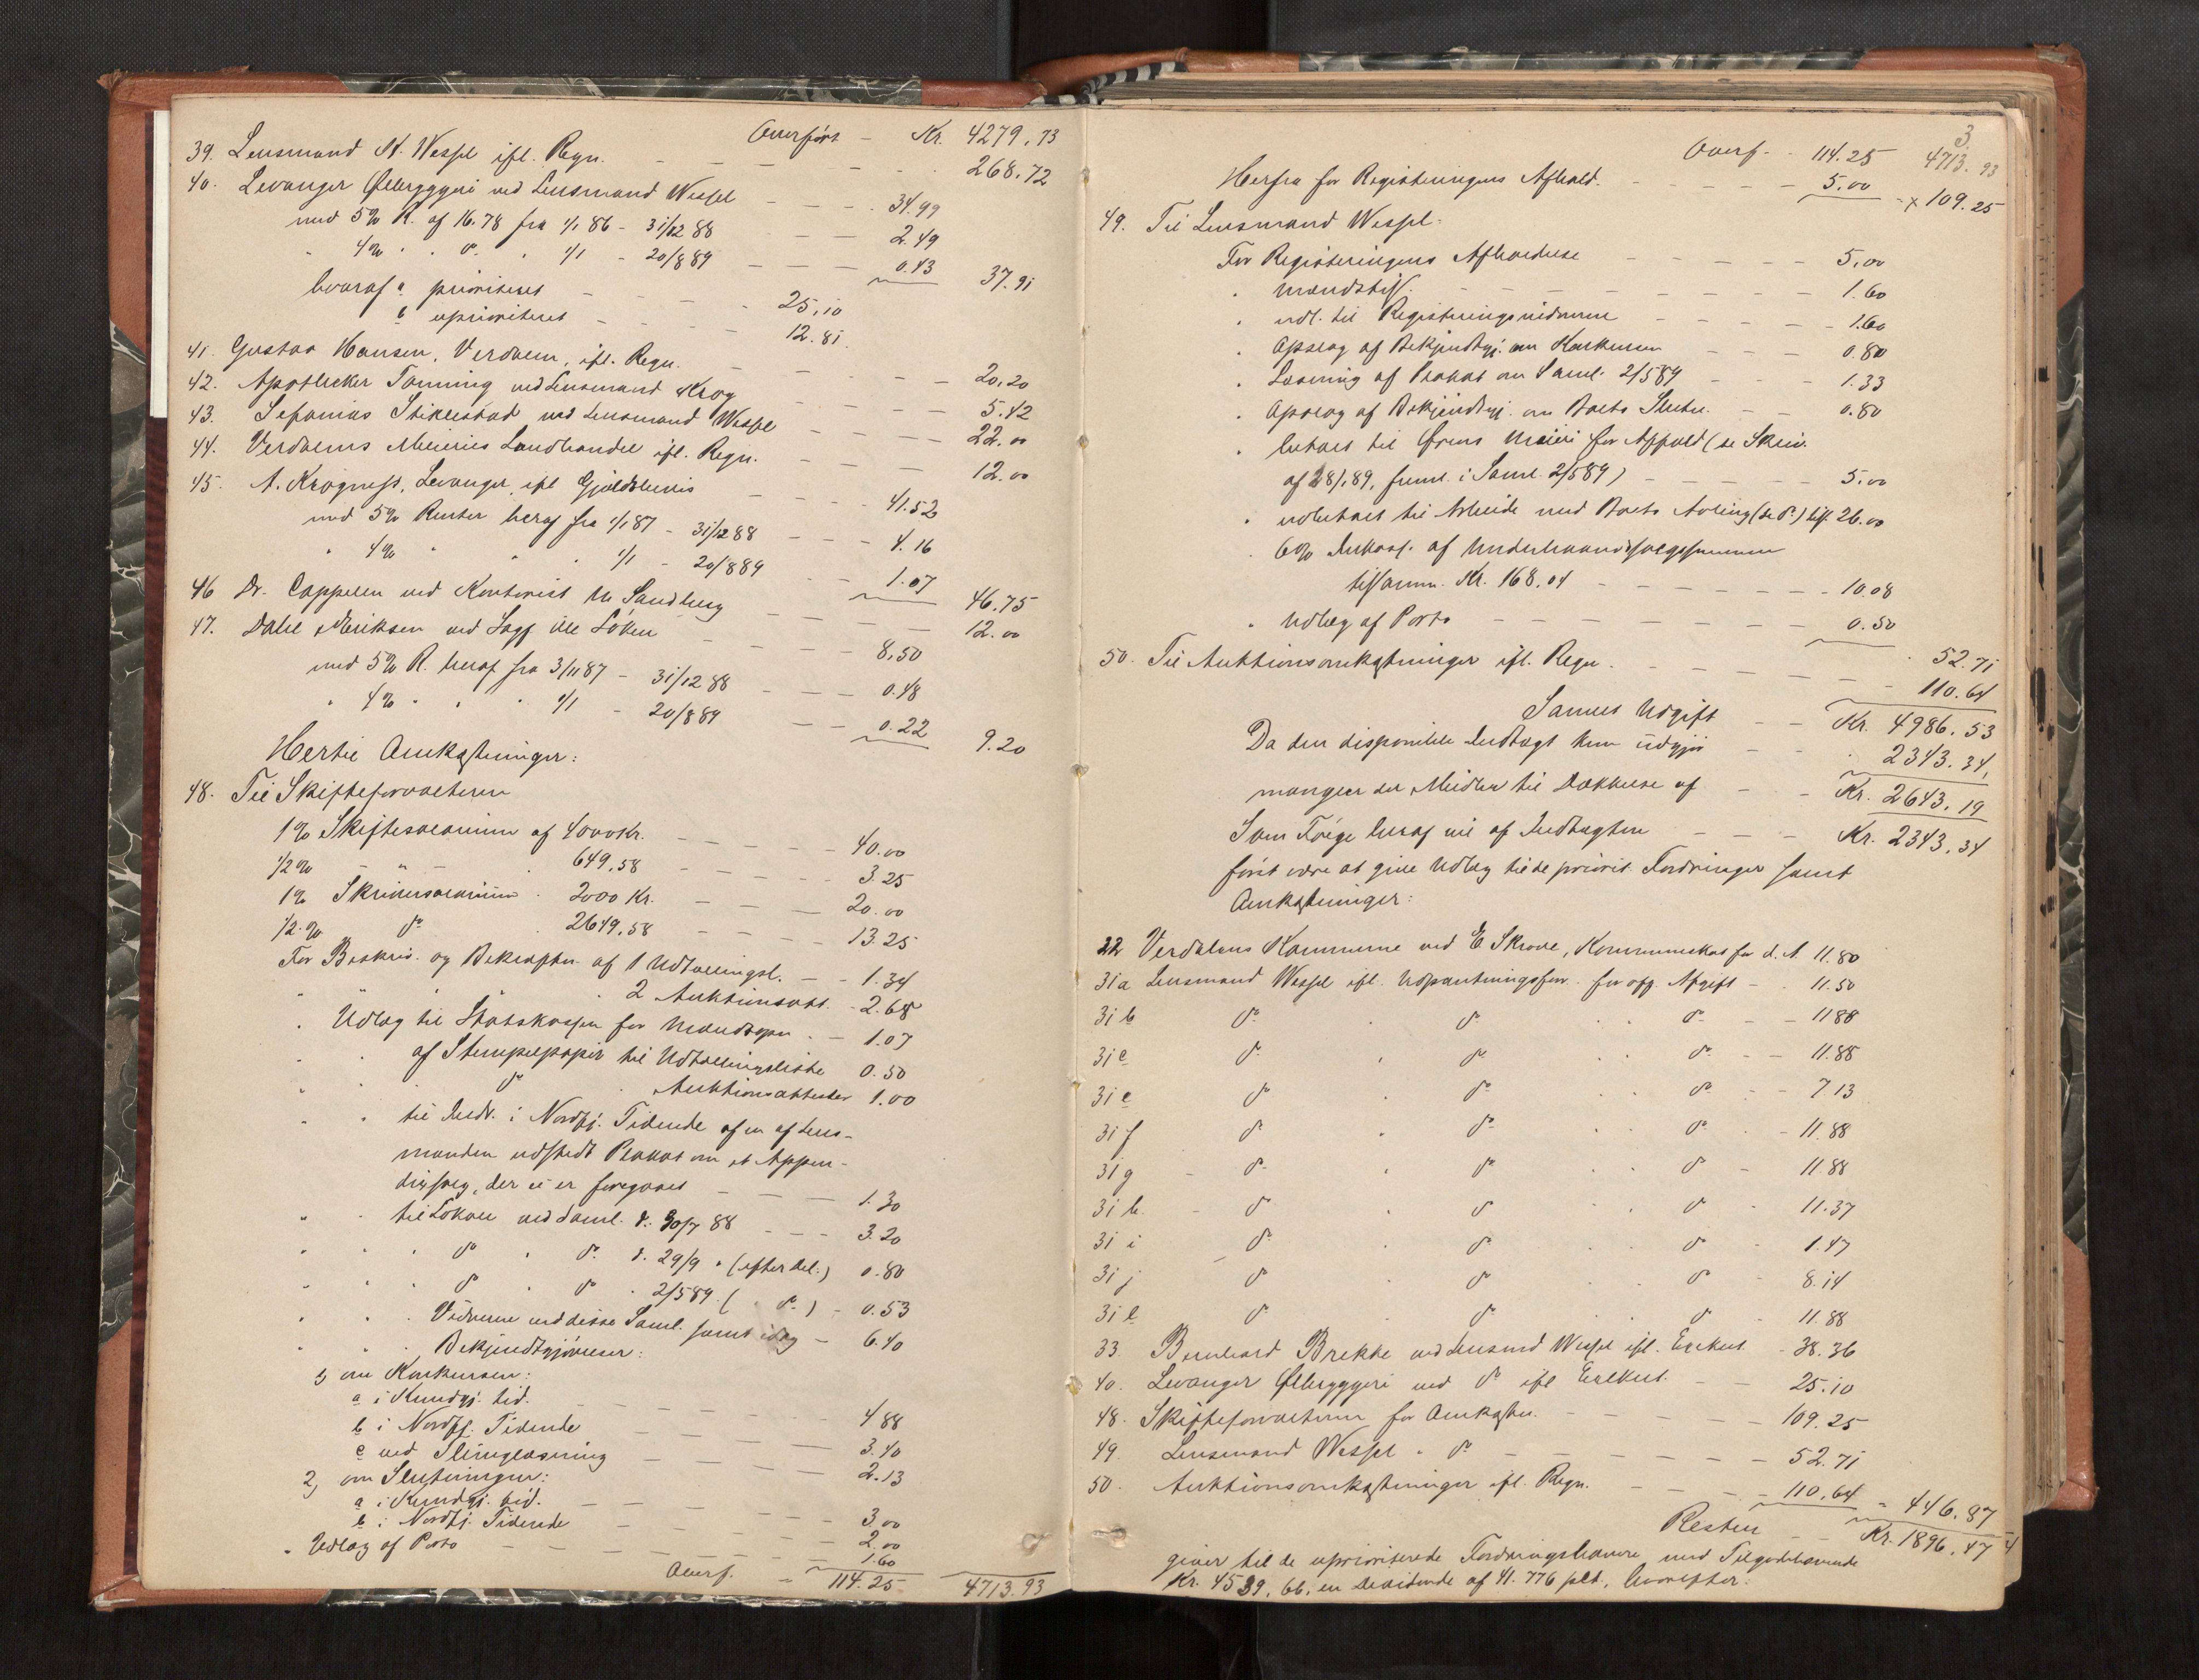 Overført - Kr. 4279.73
39. Lensmand N. Wessel ifl. Regn. - - - - - 268.72
40. Levanger Ølbryggeri ved Lensmand Wessel - - - 34.99
med 5% R. af 16.78 fra 1/1 86 - 31/12 88 - - 2.49
" 4% " " do. " 1/1 - 20/8 89 - - - 0.43 37.91
hvoraf a prioriteret - - - - 25.10
b uprioriteret - - - - 12.81.
41. Gustav Hansen, Verdalen, ifl. Regn. - - - - - 20.20
42. Apotheker Tanning ved Lensmand Krog - - - - 5.42
43. Sefanias Stiklestad ved Lensmand Wessel - - - - 22.00
44. Verdalens Meieries Landhandel ifl. Regn. - - - - 12.00
45. A. Krogness, Levanger, ifl Gjeldsbevis - - - 41.52
med 5% Renter heraf fra 1/1 87 - 31/12 88 - - - 4.16
" 4% " " " 1/1 - 20/8 89 - - 1.07 46.75
46 Dr. Cappelen ved Kontorist M Sandberg - - - - 12.00
47. Dahl & Eriksen ved Sagf. Ole Löken - - - - 8.50
med 5% R. heraf fra 3/11 87 - 31/12 88 - - - 0.48
" 4% " " " 1/1 - 20/8 89 - - 0.22 9.20
Hertil Omkostninger:
48. Til Skifteforvalteren
1% Skiftesalarium af 4000 Kr. - - - - - 40.00
1/2% - " - " 649.58 - - - - - 3.25
1% Skriversalarium " 2000 Kr. - - - - 20.00
1/2% do " 2649.58 - - - - 13.25
For Beskriv. og Bekræften af 1 Udtællingsl. - - 1.34
" " " 2 Auktionsatt. - 2.68
" Udlæg til Statskassen for Mandtpen. - - 1.07
" " af Stempelpapir til Udtællingsliste 0.50
" " do " Auktionsattester 1.00
" " til Indr. i Nordtj. Tidende af en af Lens-
manden udstedt Plakat om et Appen-
dixsalg, der ei er foregaaet - - - 1.30
" " til Lokale ved Saml. d. 30/7 88 - - - 3.20
" " " do " do. d. 29/9 " (efter Del.) 0.80
" " " do " do " 2/5 89 ( " do. ) - 0.53
" " " Vidnerne ved disse Saml. samt idag - 6.40
" " " Bekjendtgjørelser:
1) om Konkursen:
a i Kundgj. tid. - - - - - 4.88
b i Nordtj. Tidende - - - - - 3.40
c ved Thinglæsning - - - - - 2.13
2) om Slutningen:
a i Kundgj. tid. - - - - - 3.00
b i Nordtj. Tidende - - - - - 2.00
" Udlæg af Porto - - - - - - - 1.60
Overf. - 114.25 4713.93
3.
Overf. - 114.25 4713.93
Herfra for Registeringens Afhold. - - - - - 5.00 - x 109.25
49. Til Lensmand Wessel:
For Registeringens Afholdelse - - - - - 5.00
" Mandtpl. - - - - - - - - 1.60
" udl. til Registeringsvidnerne - - - - - 1.60
" Opslag af Bekjendtgj. om Konkursen - - - 0.80
" Læsning af Plakat om Saml. 2/5 89 - - - 1.33
" Opslag af Bekjendtgj. om Boets Slutn. - - 0.80
" betalt til Ørens Meieri for Ophold (se Skriv.
af 28/1 89, freml. i Saml. 2/5 89) - - - - - 5.00
" udbetalt til Arbeide med Boets Avling (se do.) tils. 26.00
" 6% Inkass. af Underhaandssalgssummen
tilsamm. Kr. 168.04 - - - - - - - 10.08
" Udlæg af Porto - - - - - - - - 0.50 52.71
50. Til Auktionsomkostninger ifl. Regn. - - - - - - 110.64
Samlet Udgift - - Kr. 4986.53
Da den disponible Indtægt kun udgjør - - 2343.34,
mangler der Midler til Dækkelse af - - Kr. 2643.19
Som Følge heraf vil af Indtægten - - - Kr. 2343.34
først være at give Udlæg til de priorit. Fordringer samt
Omkostninger:
22 Verdalens Kommune ved E Skrove, Kommuneskat for d. A. 11.80
31a Lensmand Wessel ifl. Udpantningsforr. for off. Afgift - 11.50
31 b do. " do. " " do. - - 11.88
31 c do. " do. " " do. - - 11.88
31 e do " do. " " do - - 7.13
31 f do " do. " " do. - - 11.88
31 g - do. " do " " do - 11.88
31 h. - do " do " " do - 11.37
31 i do. " do. " " do - 1.47
31 j do " do " " do - 8.14
31 l do. " do. " " do - 11.88
33. Bernhard Brekke ved Lensmd Wessel ifl. Exekut. - 38.36
40. Levanger Ølbryggeri ved do ifl Exekut. - - 25.10
48. Skifteforvalteren for Omkostn. - - - - - 109.25
49 Lensmand Wessel " do - - - - - - 52.71
50. Auktionsomkostninger ifl. Regn. - - - - - 110.64 = 446.87
Resten - - Kr. 1896.47
giver til de uprioriterede Fordringshavere med Tilgodehavende
Kr. 4539.66, en Dividende af 41.776 pCt., hvorefter: